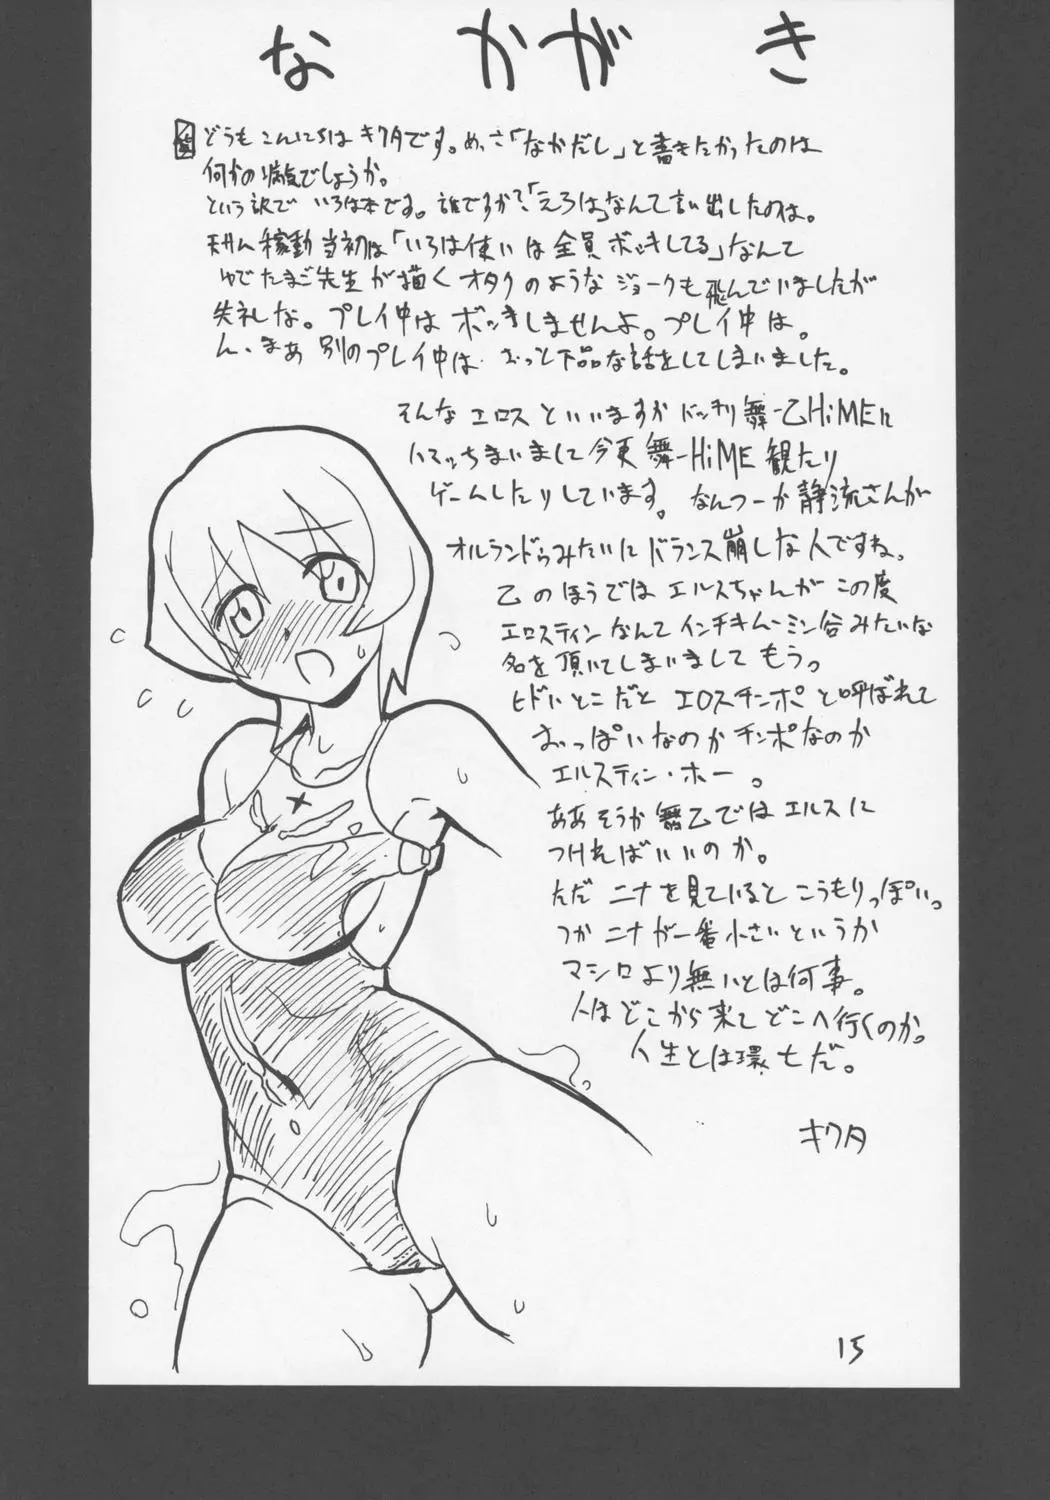 なかがき
どうもこんにちは キクタです。めっさ「なかだし」と書きたかったのは
何かの病気でしょうか。
という訳で いろは本です。誰ですか?「えろは」なんて言い出したのは。
稼動当初は「いろは使いは全員ボッキしてる」なんて
ゆでたまご先生が描くオタクのようなジョークも飛んでいましたが
失礼な。プレイ中はボッきしませんよ。プレイ中は。
ん、まあ 別のプレイ中は…おっと下品な話をしてしまいました。
そんなエロスといいますか バッチリ舞-乙HiMEに
ハマッちまいまして今更 舞-HiME 観たり
ゲームしたりしています。なんつーか静流さんが
オルランドゥみたいにバランス崩しな人ですね。
乙のほうではエルスちゃんがこの度
エロスティンなんてインチキムーミン谷みたいな
名を頂いてしまいましてもう。
ヒドいとこだと エロスチンポと呼ばれて
おっぱいなのかチンポなのか
エルスティン・ホー。
ああそうか舞乙ではエルスに
つければいいのか。
ただ ニナを見ていると こうもりっぽい。
つか ニナが一番小さいというか
マシロより無いとは何事。
人はどこから来てどこへ行くのか。
人生とは環七だ。
キクタ
15